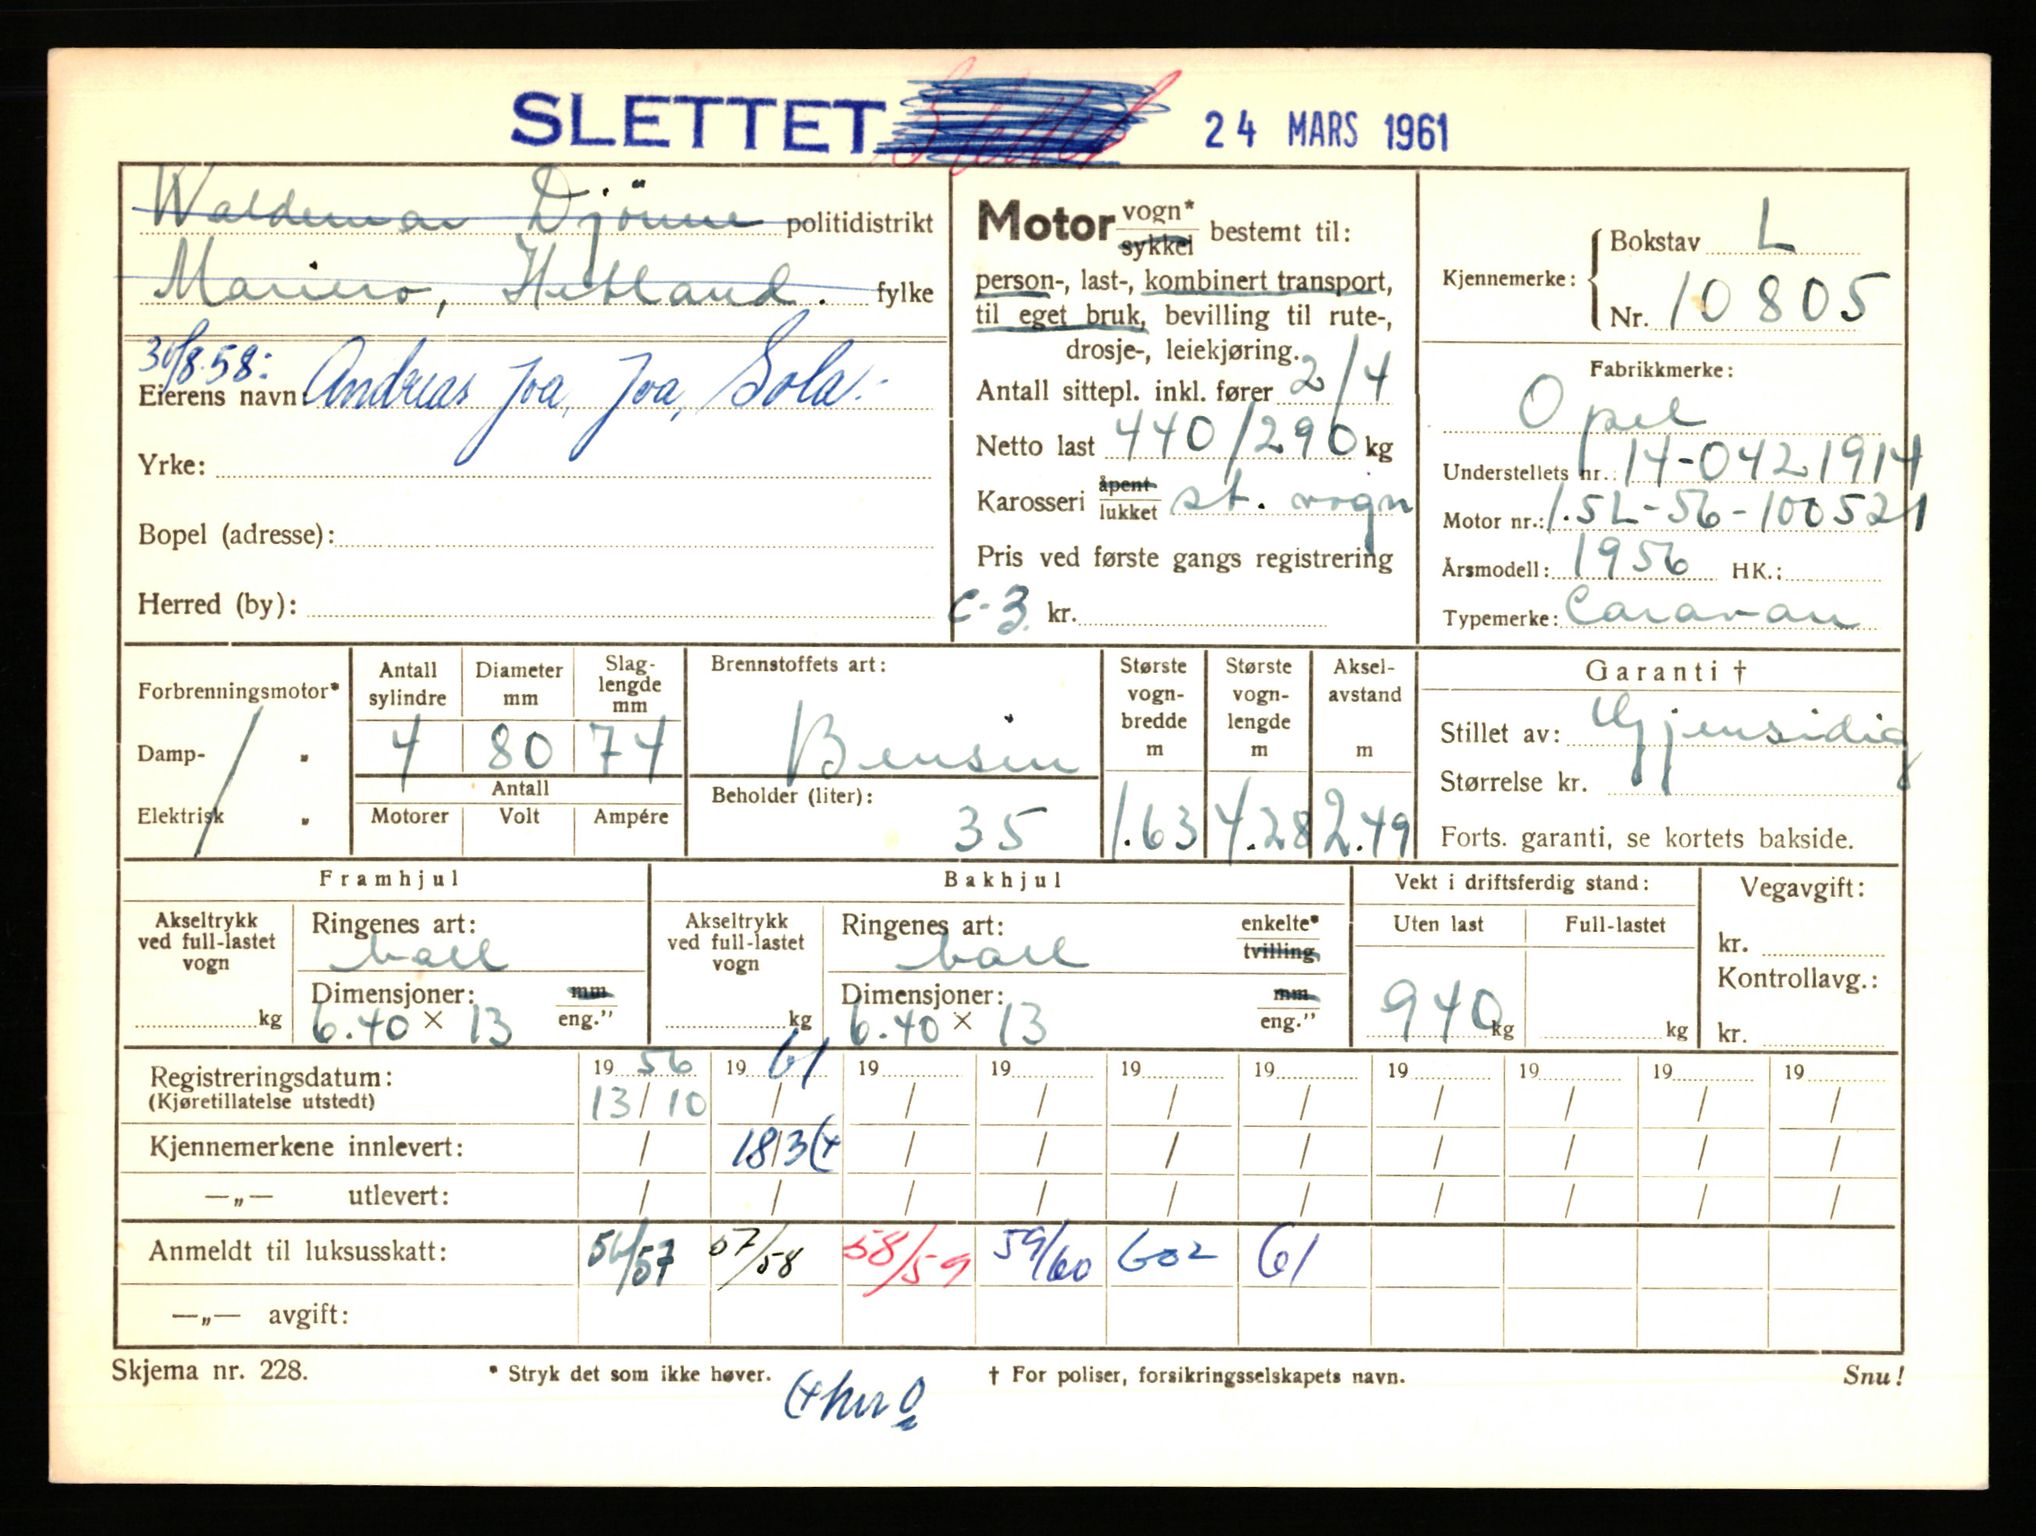 SLETTET 24 MARS 1961
Waldemar Djönne politidistrikt
Mariero, Hetland. fylke
30/8.58:
Eierens navn Andreas Joa, Joa, Sola.
Yrke:
Bopel (adresse):
Herred (by):
Motor vogn* sykkel bestemt til:
person-, last-, kombinert transport,
til eget bruk, bevilling til rute-,
drosje-, leiekjøring.
Antall sittepl. inkl. fører 2/4
Netto last 440/290 kg
Karosseri åpent lukket st. vogn
Pris ved første gangs registrering
C-3 kr.
Kjennemerke: Bokstav L
Nr. 10805
Fabrikkmerke:
Opel
Understellets nr.: 14-0421914
Motor nr.: 1.5L-56-100521
Årsmodell: 1956 HK.:
Typemerke: Caravan
Forbrenningsmotor*
Damp- "
Elektrisk "
Antall sylindre 4
Diameter mm 80
Slag-lengde mm 74
Antall
Motorer Volt Ampére
Brennstoffets art:
Bensin
Beholder (liter):
35
Største vogn-bredde m 1.63
Største vogn-lengde m 4.28
Aksel-avstand m 2.49
Garanti †
Stillet av: Gjensidig
Størrelse kr.
Forts. garanti, se kortets bakside.
Framhjul
Akseltrykk ved full-lastet vogn
kg
Ringenes art:
ball
Dimensjoner: mm
6.40 × 13 eng."
Bakhjul
Akseltrykk ved full-lastet vogn
kg
Ringenes art: enkelte*
ball tvilling
Dimensjoner: mm
6.40 × 13 eng."
Vekt i driftsferdig stand:
Uten last Full-lastet
940 kg kg
Vegavgift:
kr.
Kontrollavg.:
kr.
Registreringsdatum: 19 56 19 61 19 19 19 19 19 19 19 19
(Kjøretillatelse utstedt) 13/10 / / / / / / / / /
Kjennemerkene innlevert: / 18/3 (+ / / / / / / / /
—„— utlevert: / / / / / / / / / /
Anmeldt til luksusskatt: 56/57 57/58 58/59 59/60 602 61
—„— avgift:
Skjema nr. 228. * Stryk det som ikke høver. † For poliser, forsikringsselskapets navn. Snu!